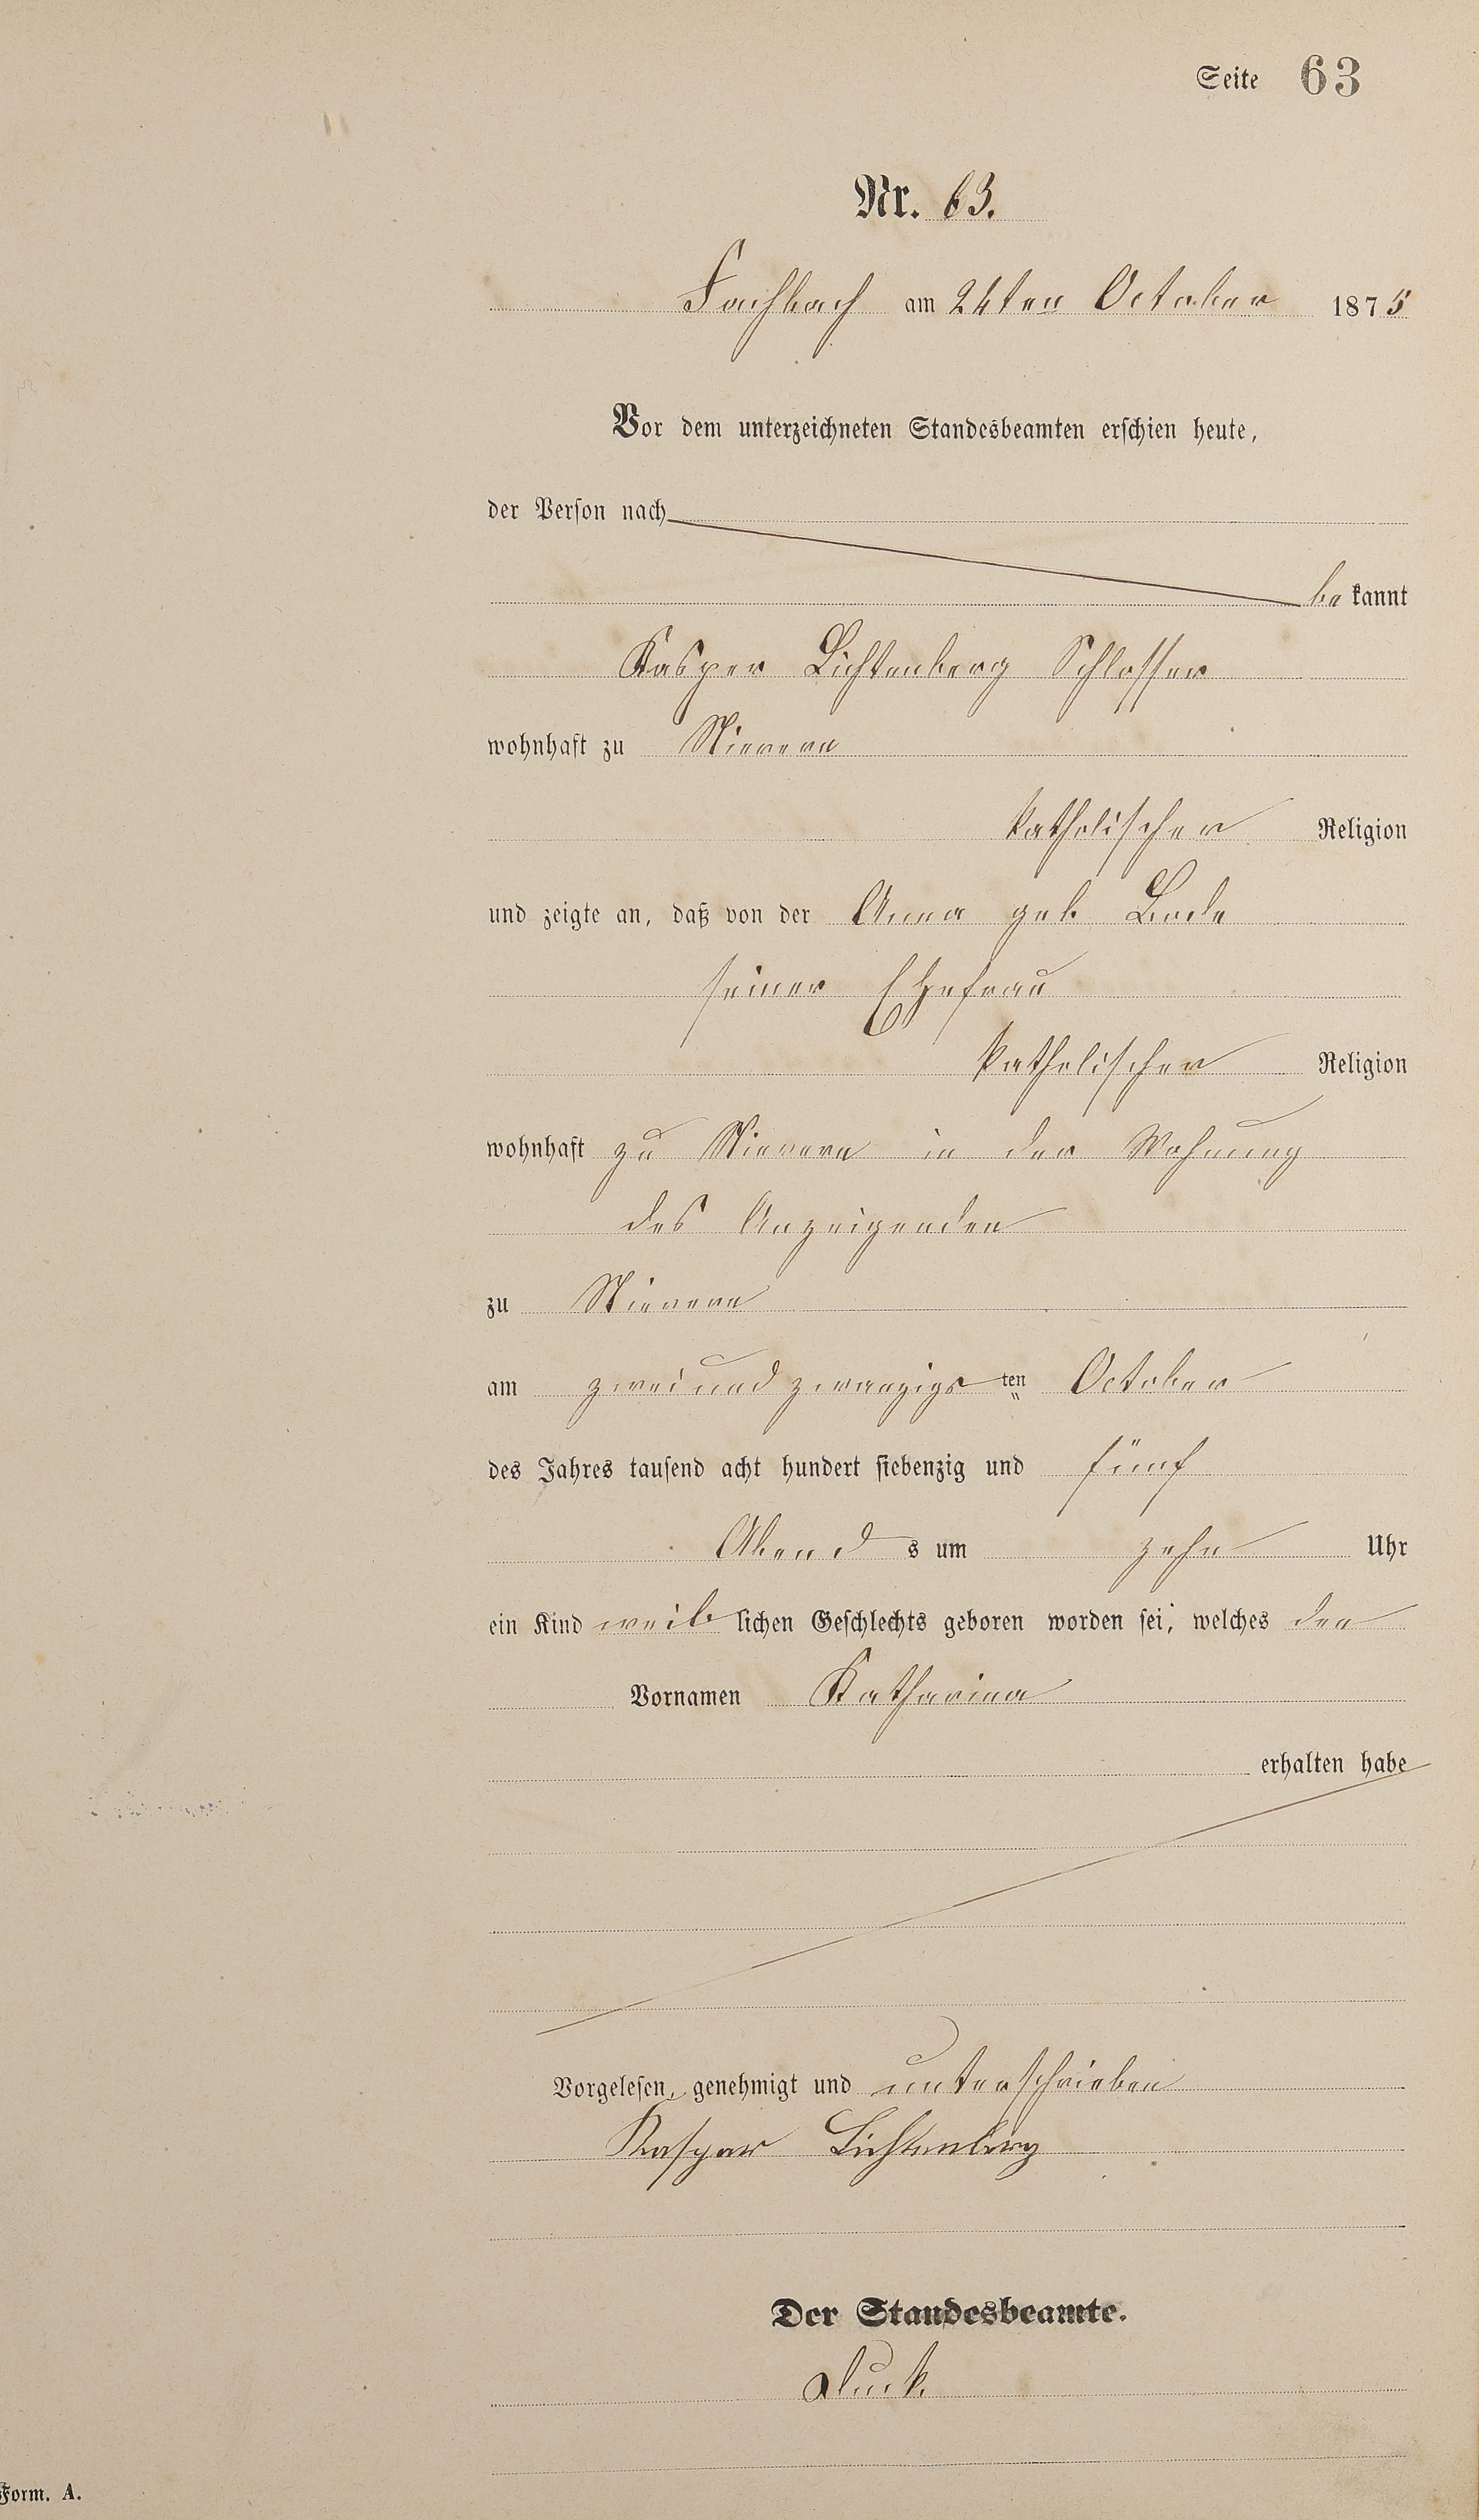 Seite 63
Nr. 63.
Fachbach am 24ten October 1875
Vor dem unterzeichneten Standesbeamten erschien heute,
der Person nach
bekannt
Kasper Lichtenberg Schlosser
wohnhaft zu Nievern
katholischer Religion
und zeigte an, daß von der Anna geb Bode
seiner Ehefrau
katholischer Religion
wohnhaft zu Nievern in der Wohnung
des Anzeigenden
zu Nievern
am zwei und zwanzigsten October
des Jahres tausend acht hundert siebenzig und fünf
Abends um zehn Uhr
ein Kind weiblichen Geschlechts geboren worden sei, welches den
Vornamen Katharina
erhalten habe
Vorgelesen, genehmigt und unterschrieben
Kaspar Lichtenberg
Der Standesbeamte.
Form. A.